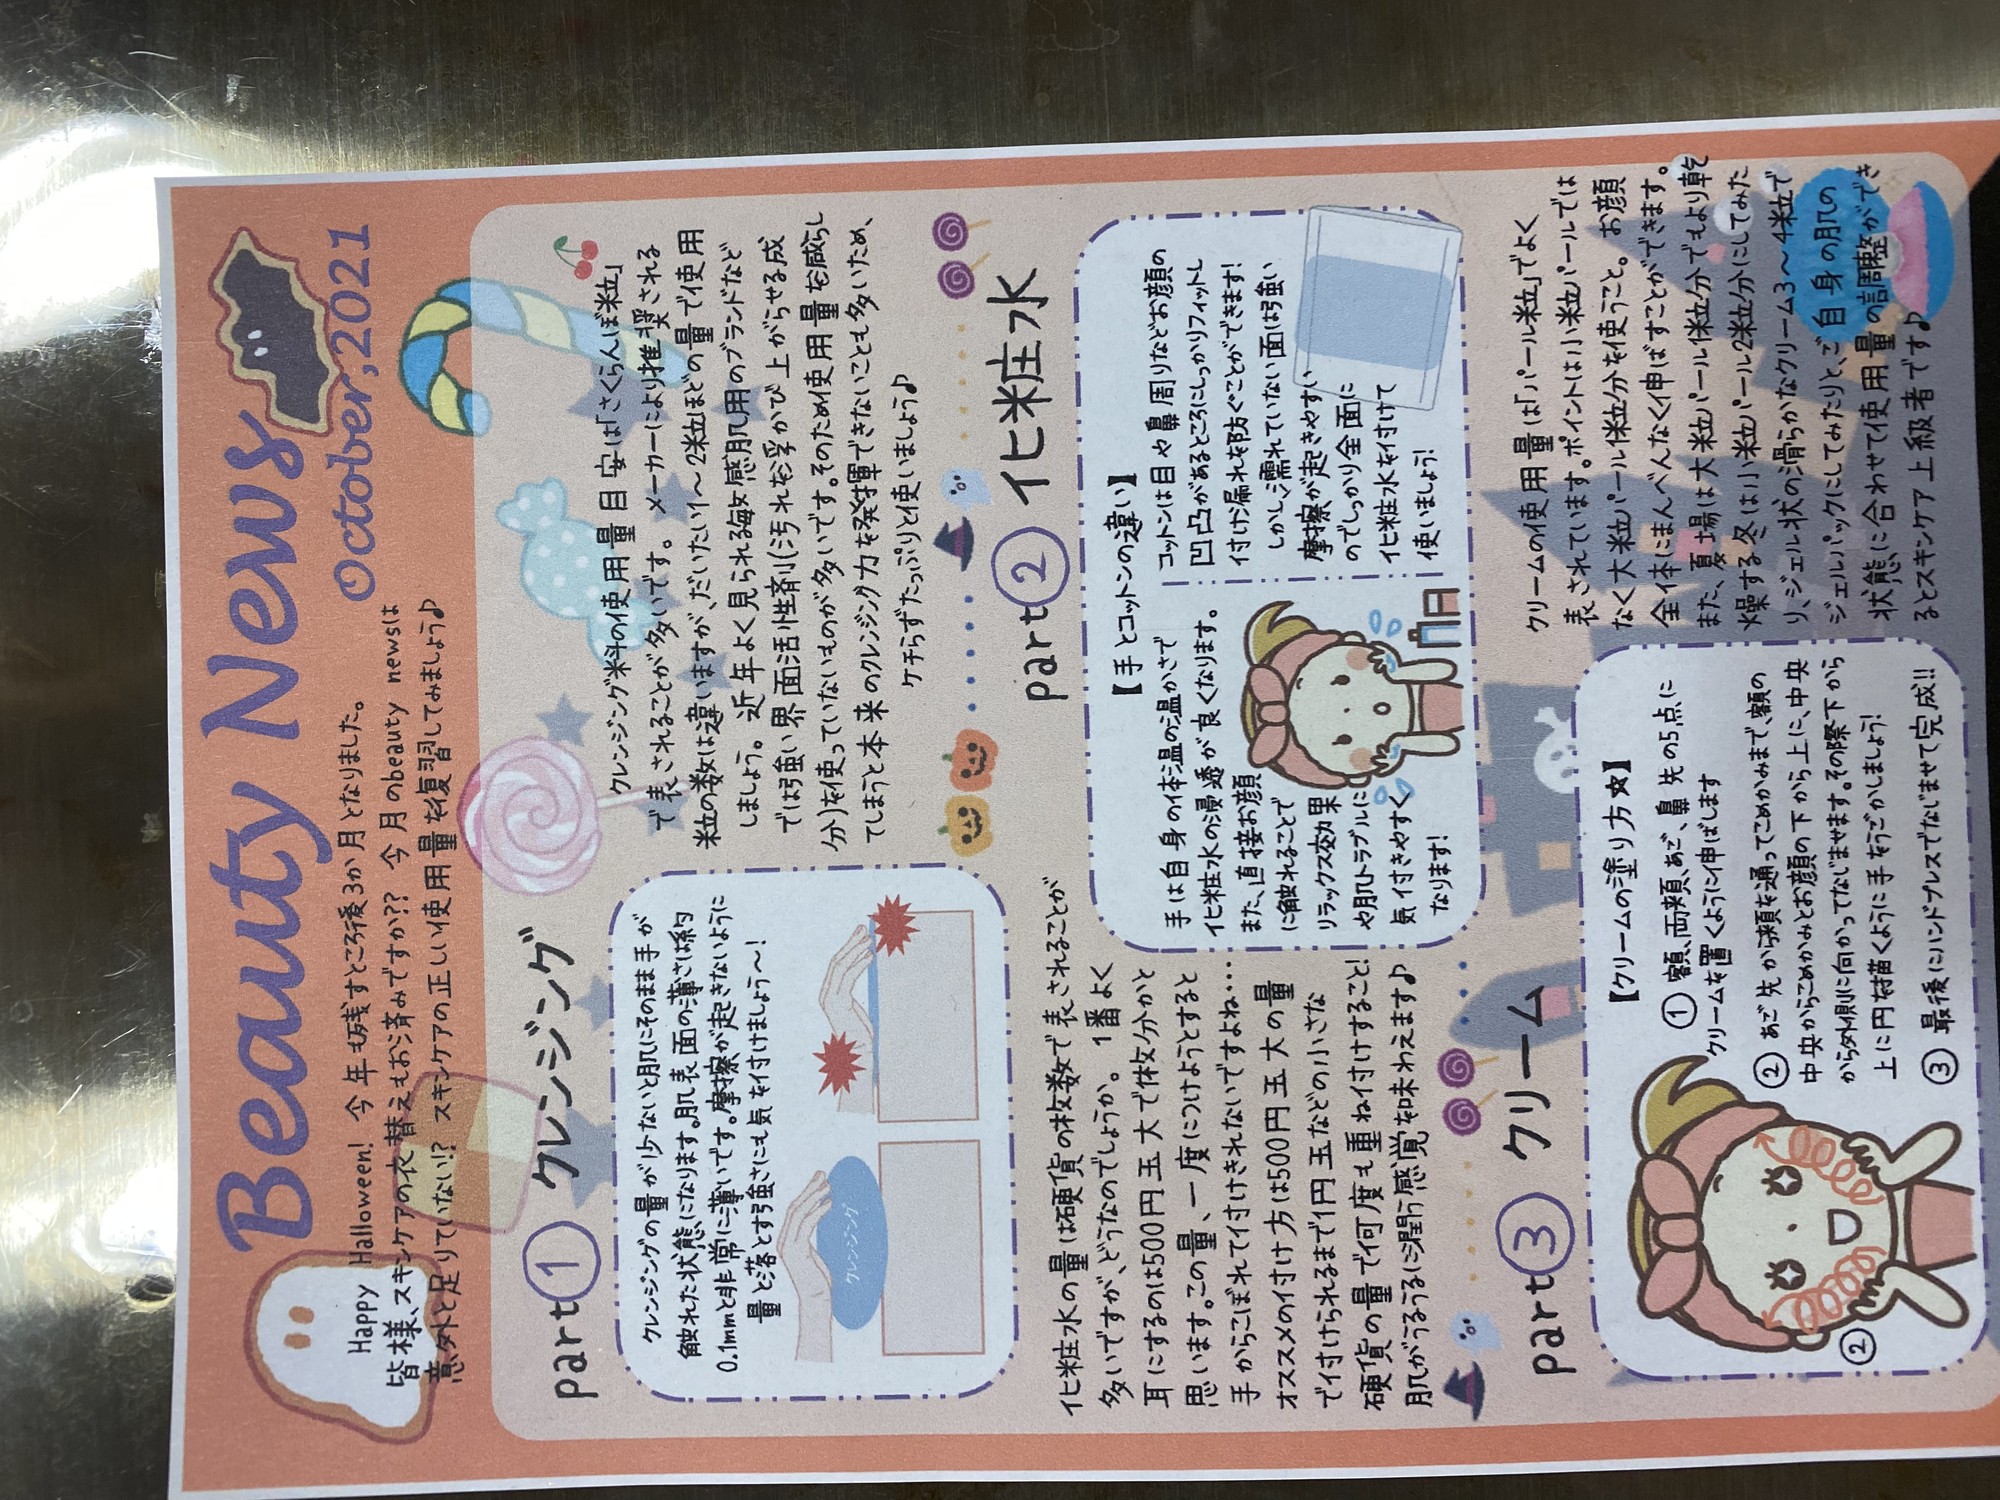 Beauty News
October,2021
Happy Halloween! 今年も残すところ後3か月となりました。
皆様、スキンケアの衣替えもお済みですか?? 今月のbeauty newsは
意外と足りていない!? スキンケアの正しい使用量を復習してみましょう♪
part① クレンジング
クレンジング料の使用量目安は「さくらんぼ粒」
で表されることが多いです。メーカーにより推奨される
粒の数は違いますが、だいたい1~2粒ほどの量で使用
しましょう。近年よく見られる敏感肌用のブランドなど
では弱強い界面活性剤(汚れを浮かび上がらせる成
分)を使っていないものが多いです。そのため使用量を減らし
てしまうと本来のクレンジング力を発揮できないことも多いため、
ケチらずたっぷりと使いましょう♪
クレンジングの量が少ないと肌にそのまま手が
触れた状態になります。肌表面の薄さは約
0.1mmと非常に薄いです。摩擦が起きないように
量と落とす強さにも気を付けましょう~!
クレンジング
part② 化粧水
化粧水の量は硬貨の枚数で表されることが
多いですが、どうなのでしょうか。1番よく
耳にするのは500円玉大で1枚分かと
思います。この量、一度につけようとすると
手からこぼれて付けきれないですよね…
オススメの付け方は500円玉大の量
で付けられるまで1円玉などの小さな
硬貨の量で何度も重ね付けすること!
肌がうるうるに潤う感覚を味わえます♪
【手とコットンの違い】
手は自身の体温の温かさで
化粧水の浸透が良くなります。
また、直接お顔
に触れることで
リラックス効果
や肌トラブルに
気付きやすく
なります!
コットンは目や鼻周りなどお顔の
凹凸があるところにしっかりフィットし
付け漏れを防ぐことができます!
しかし、濡れていない面は強い
摩擦が起きやすい
のでしっかり全面に
化粧水を付けて
使いましょう!
part③ クリーム
クリームの使用量は「パール粒」でよく
表されています。ポイントは小粒パールでは
なく大粒パール1粒分を使うこと。お顔
全体にまんべんなく伸ばすことができます。
また、夏場は大粒パール1粒分でも、より乾
燥する冬は小粒パール2粒分にしてみた
り、ジェル状の滑らかなクリーム3~4粒で
ジェルパックにしてみたりと、ご自身の肌の
状態に合わせて使用量の調整ができ
るとスキンケア上級者です♪
【クリームの塗り方☆】
① 額、両頬、あご、鼻先の5点に
クリームを置くように伸ばします
② あご先から頬を通ってこめかみまで、額の
中央からこめかみとお顔の下から上に、中央
から外側に向かってなじませます。その際下から
上に円を描くように手をうごかしましょう!
③ 最後にハンドプレスでなじませて完成!!
②